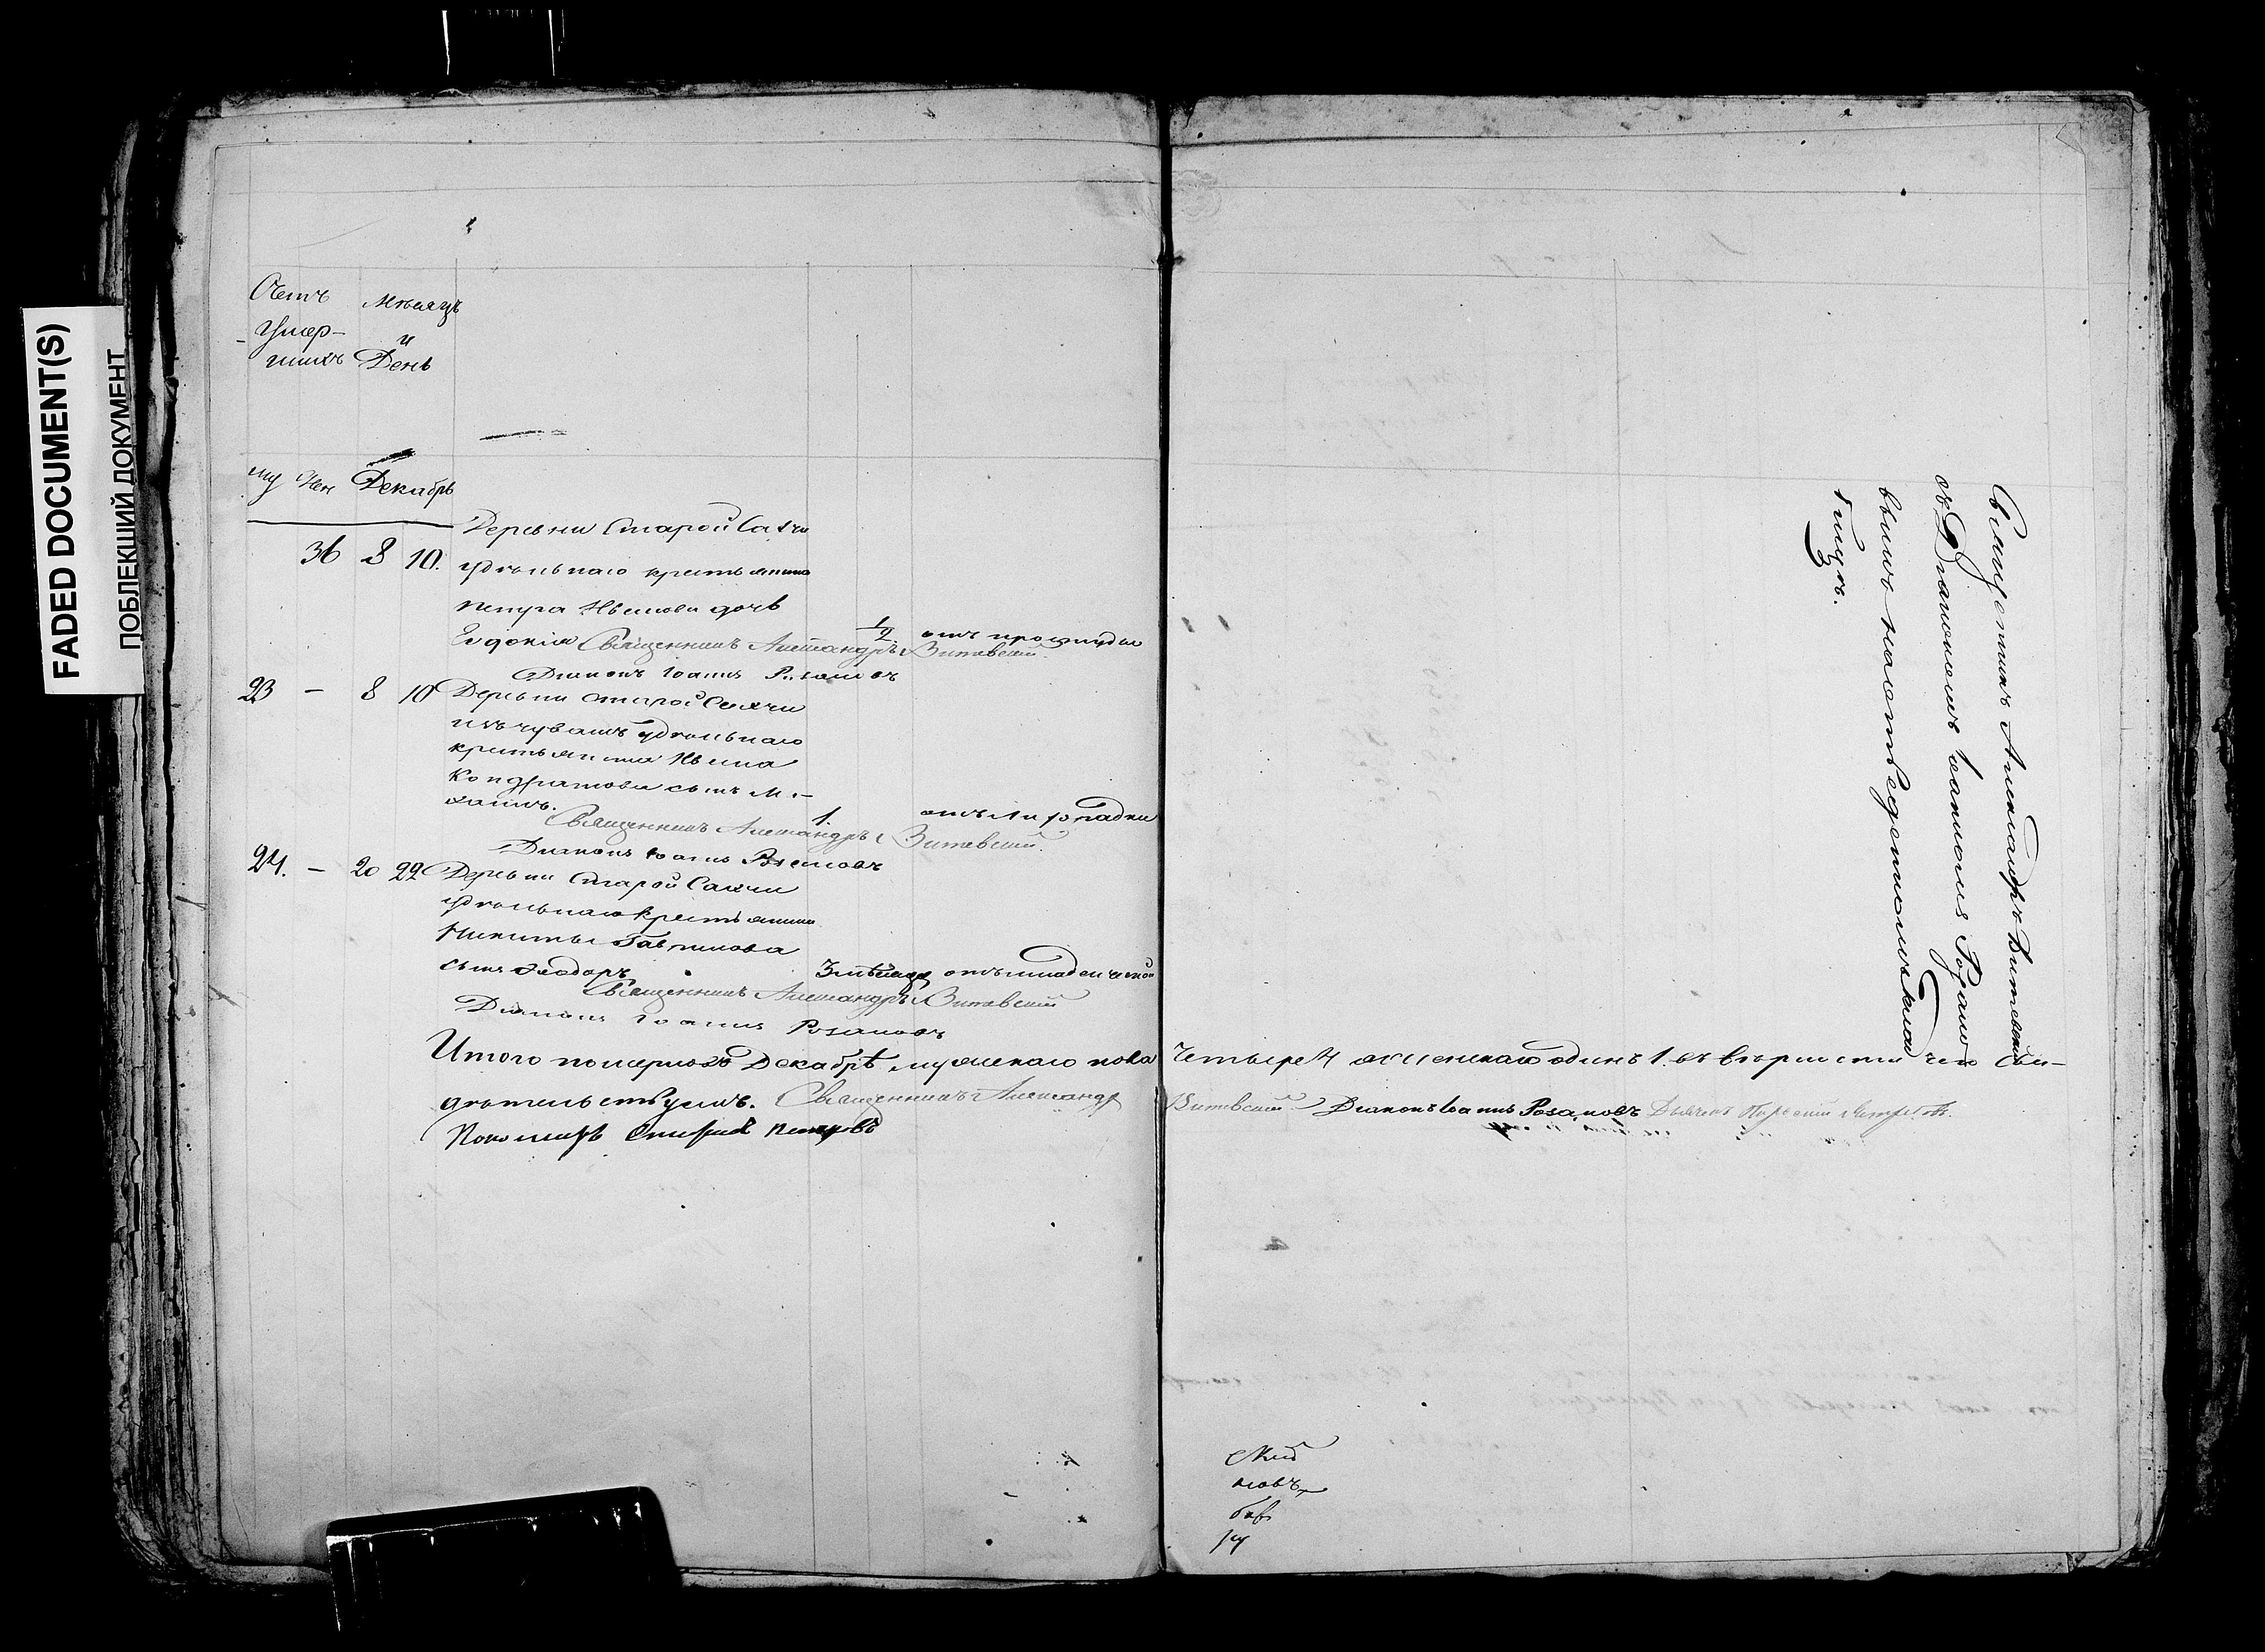 FADED DOCUMENT(S)
ПОБЛЕКШИЙ ДОКУМЕНТ
Счетъ
Умер-
шихъ
Мѣсяцъ
и
День
му Жен Декабрь
Деревни Старой Сахчи
36 8 10. удѣльнаго крестьянина
Петра Иванова дочь
Евдокія 1/2 отъ простуды
Священникъ Александръ Витевский
Диаконъ Іоаннъ Розановъ
23 — 8 10 Деревни Старой Сахчи
изъ чувашъ удѣльнаго
крестьянина Ивана
Кондратова сынъ М-
1. отъ лихорадки
Священникъ Александръ Витевский
Диаконъ Іоаннъ Розановъ
24. — 20 22 Деревни Старой Сахчи
удѣльнаго крестьянина
Никиты Гаврилова
сынъ Феодоръ отъ младенческой
Священникъ Александръ Витевский
Диаконъ Іоаннъ Розановъ
Итого померло въ Декабрѣ мужескаго пола Четыре 4 женскаго одинъ 1. въ вѣрности чего Сви-
дѣтельствуемъ. Священникъ Александръ Витевский Диаконъ Іоаннъ Розановъ Дьячекъ
Пономарь Петровъ
Священникъ Александръ Витевский
съ Діакономъ Іоанномъ Розано
вымъ
новъ